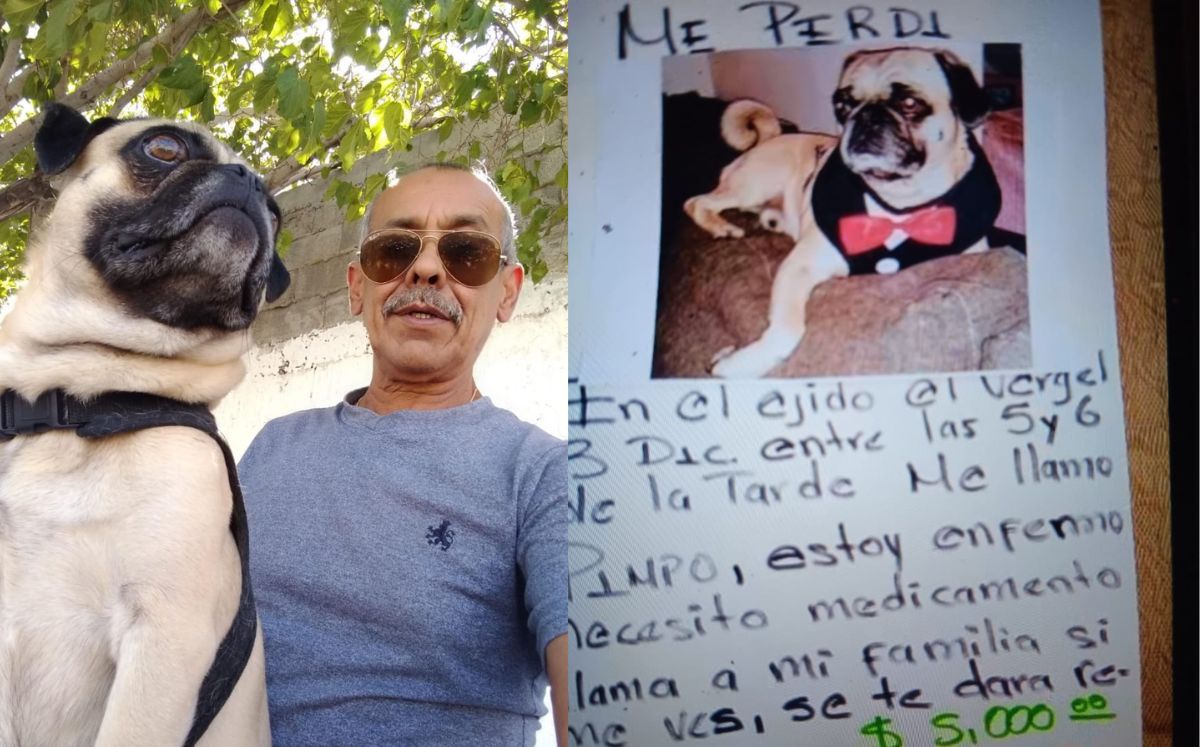 ME PERDI
En el ejido el vergel
3 Dic. entre las 5 y 6
de la Tarde Me llamo
PIMPO, estoy enfermo
necesito medicamento
llama a mi familia si
me ves, se te dara re-
$ 5,000 00